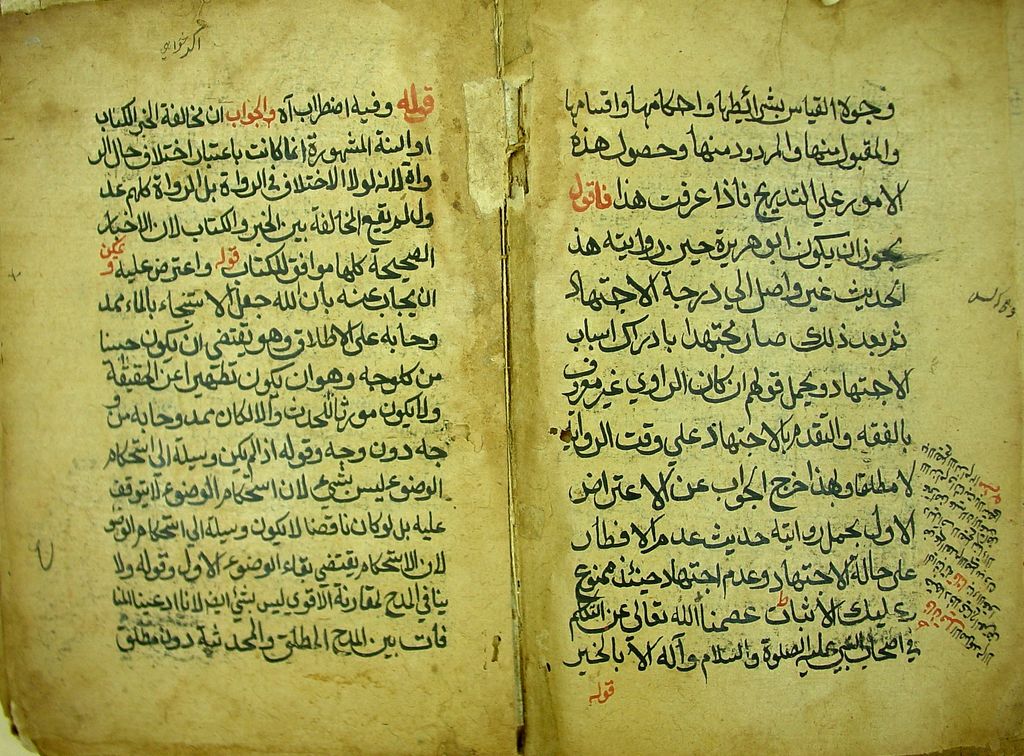 وجوه القياس بشرائطها واحكامها واقسامها
والمقبول منها والمردود منها وحصول هذه
الامور علي التدريج فاذا عرفت هذا فاقول
يجوز ان يكون ابو هريرة حين روايته هذ
الحديث غير واصل الي درجة الاجتهاد
ثم بعد ذلك صار مجتهدا بادراك اسباب
الاجتهاد ويحمل قولهم ان كان الراوي غير معروف
بالفقه والتقدم بالاجتهاد علي وقت الرواية
لا مطلقا وبهذا خرج الجواب عن الاعتراض
الاول بحمل روايته حديث عدم الافطار
علي حالة الاجتهاد وعدم اجتهاد حينئذ ممنوع
وعليك الاثبات عصمنا الله تعالي عن التكلم
في اصحاب النبي عليه الصلوة والسلام وآله الا بالخير
قوله
قوله وفيه اضطراب آه والجواب ان مخالفة الخبر الكتاب
او السنة المشهورة انما كانت باعتبار اختلاف حال الر
واة لانه لولا الاختلاف في الرواة بل الرواة كلهم عد
ول لم يقع المخالفة بين الخبر والكتاب لان الاخبار
الصحيحة كلها موافق للكتاب قوله واعترض عليه ويمكن
ان يجاب عنه بان الله جعل الاستنجاء بالماء ممد
وحا به علي الاطلاق وهو يقتضي ان يكون حسنا
من كل وجه وهو ان يكون تطهيرا عن الحقيقة
ولا يكون مورثا للحدث والا لكان ممدوحا به من و
جه دون وجه وقوله اذ لم يكن وسيلة الي استحكام
الوضوء ليس بشئ لان استحكام الوضوء لا يتوقف
عليه بل لو كان ناقضا لا يكون وسيلة الي استحكام الوضو
لان الاستحكام يقتضي بقاء الوضوء الاول وقوله ولا
ينافي المدح لمقارنة الاقوي ليس بشئ ايضا لانا ادعينا المنا
فات بين المدح المطلق والمحدثية دون مطلق